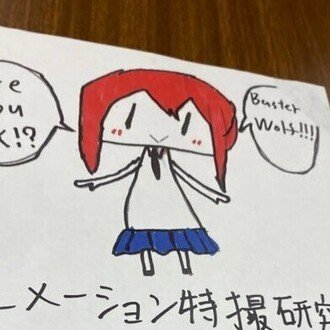 re
ou
K!?
Buster
Wolf!!!
ニメーション特撮研究